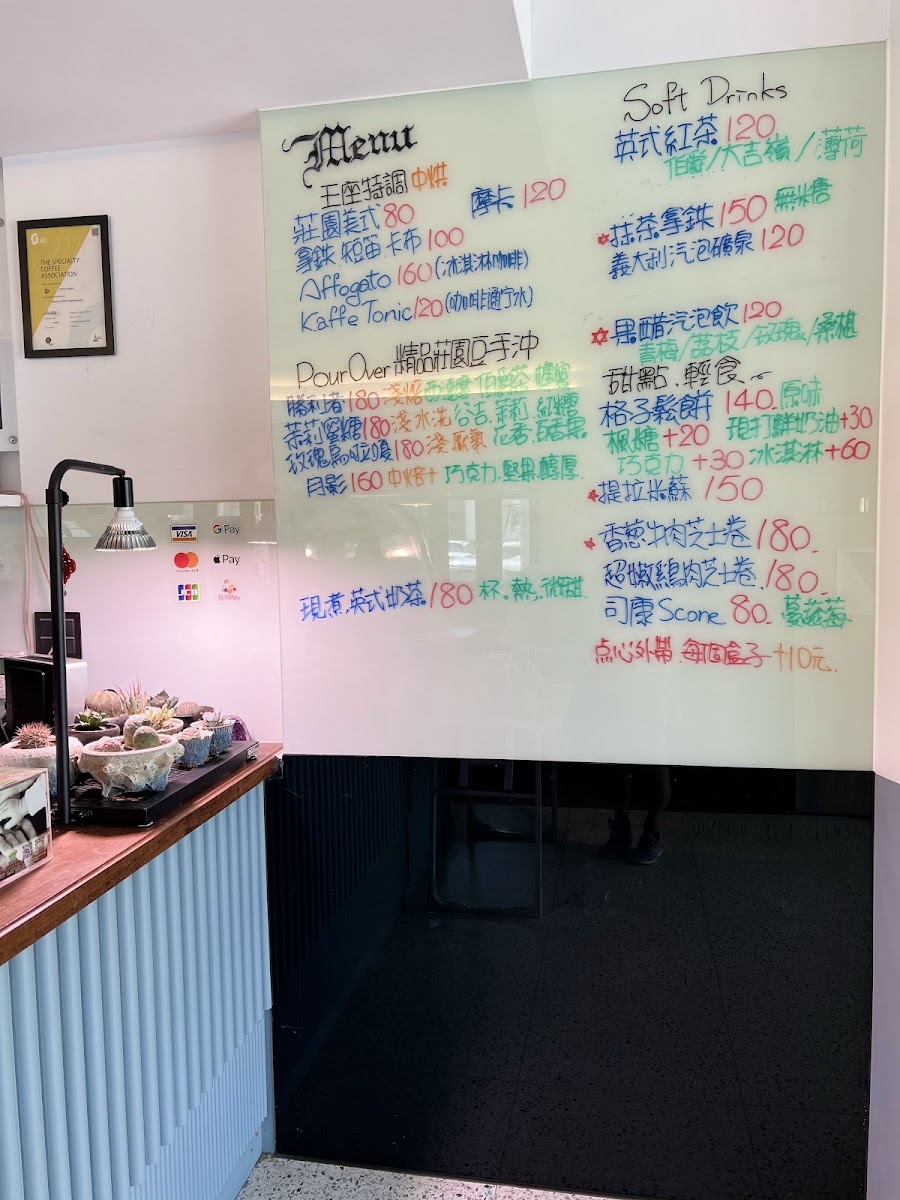 THE SPECIALTY
COFFEE
ASSOCIATION
VISA
G Pay
Pay
JCB
Menu
王座特調 中烘
莊園美式 80
摩卡 120
拿鉄.短笛.卡布 100
Affogato 160 (冰淇淋咖啡)
Kaffe Tonic 120 (咖啡通宁水)
Pour Over 精品莊園豆手沖
勝利者 180 淺焙 伯爵茶 蜂蜜
茉莉蜜糖 180 淺水洗 茉莉 紅糖
玫瑰烏 180 淺 花香.百香果
月影 160 中焙+ 巧克力.堅果.醇厚
現煮.英式奶茶 180 杯.熱.微甜
Soft Drinks
英式紅茶 120
伯爵/大吉嶺/薄荷
抹茶拿鉄 150 無糖
義大利汽泡礦泉 120
果醋汽泡飲 120
青梅/荔枝/玫瑰/桑椹
甜點.輕食~
格子鬆餅 140. 原味
楓糖+20 現打鮮奶油+30
巧克力 +30 冰淇淋+60
提拉米蘇 150
香蔥牛肉芝士卷 180.
超嫩鷄肉芝士卷.180.
司康 Scone 80. 蔓越莓
点心外帶.每個盒子 +10元.